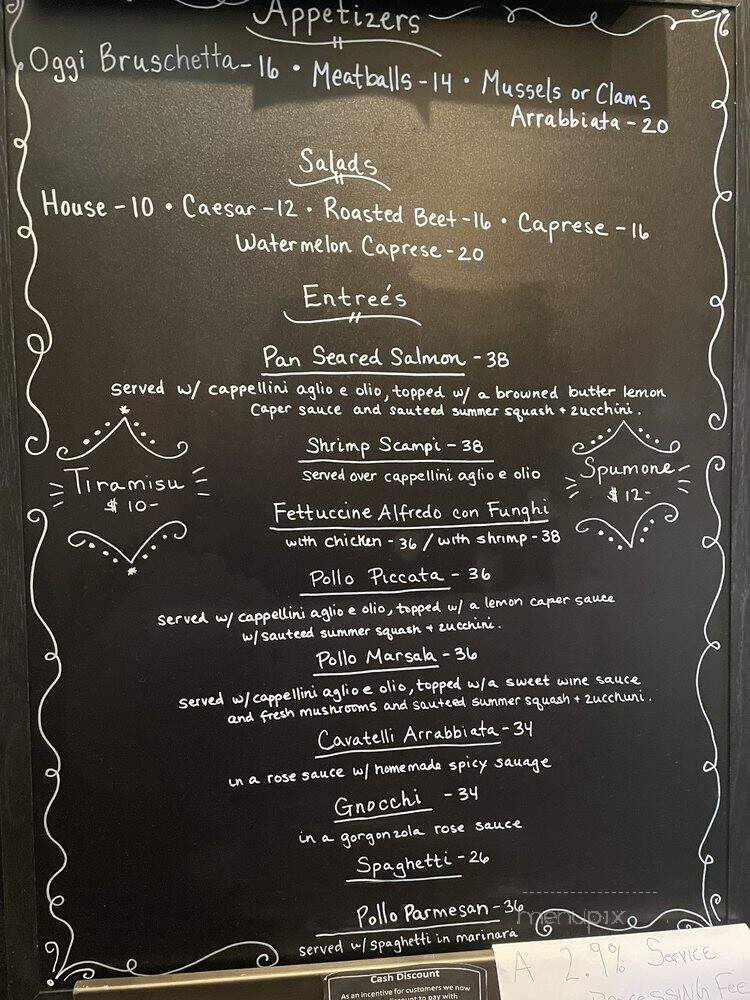 Appetizers
Oggi Bruschetta - 16 • Meatballs - 14 • Mussels or Clams
Arrabbiata - 20
Salads
House - 10 • Caesar - 12 • Roasted Beet - 16 • Caprese - 16
Watermelon Caprese - 20
Entreés
Pan Seared Salmon - 38
served w/ cappellini aglio e olio, topped w/ a browned butter lemon
caper sauce and sauteed summer squash + zucchini.
Tiramisu
$ 10-
Shrimp Scampi - 38
served over cappellini aglio e olio
Spumone
$ 12-
Fettuccine Alfredo con Funghi
with chicken - 36 / with shrimp - 38
Pollo Piccata - 36
served w/ cappellini aglio e olio, topped w/ a lemon caper sauce
w/ sauteed summer squash + zucchini.
Pollo Marsala - 36
served w/ cappellini aglio e olio, topped w/ a sweet wine sauce
and fresh mushrooms and sauteed summer squash + zucchuni.
Cavatelli Arrabbiata - 34
in a rose sauce w/ homemade spicy sauage
Gnocchi - 34
in a gorgonzola rose sauce
Spaghetti - 26
Pollo Parmesan - 36
served w/ spaghetti in marinara
menupix
A 2.9% Service
Processing Fee
Cash Discount
As an incentive for customers we now
discount to pay with